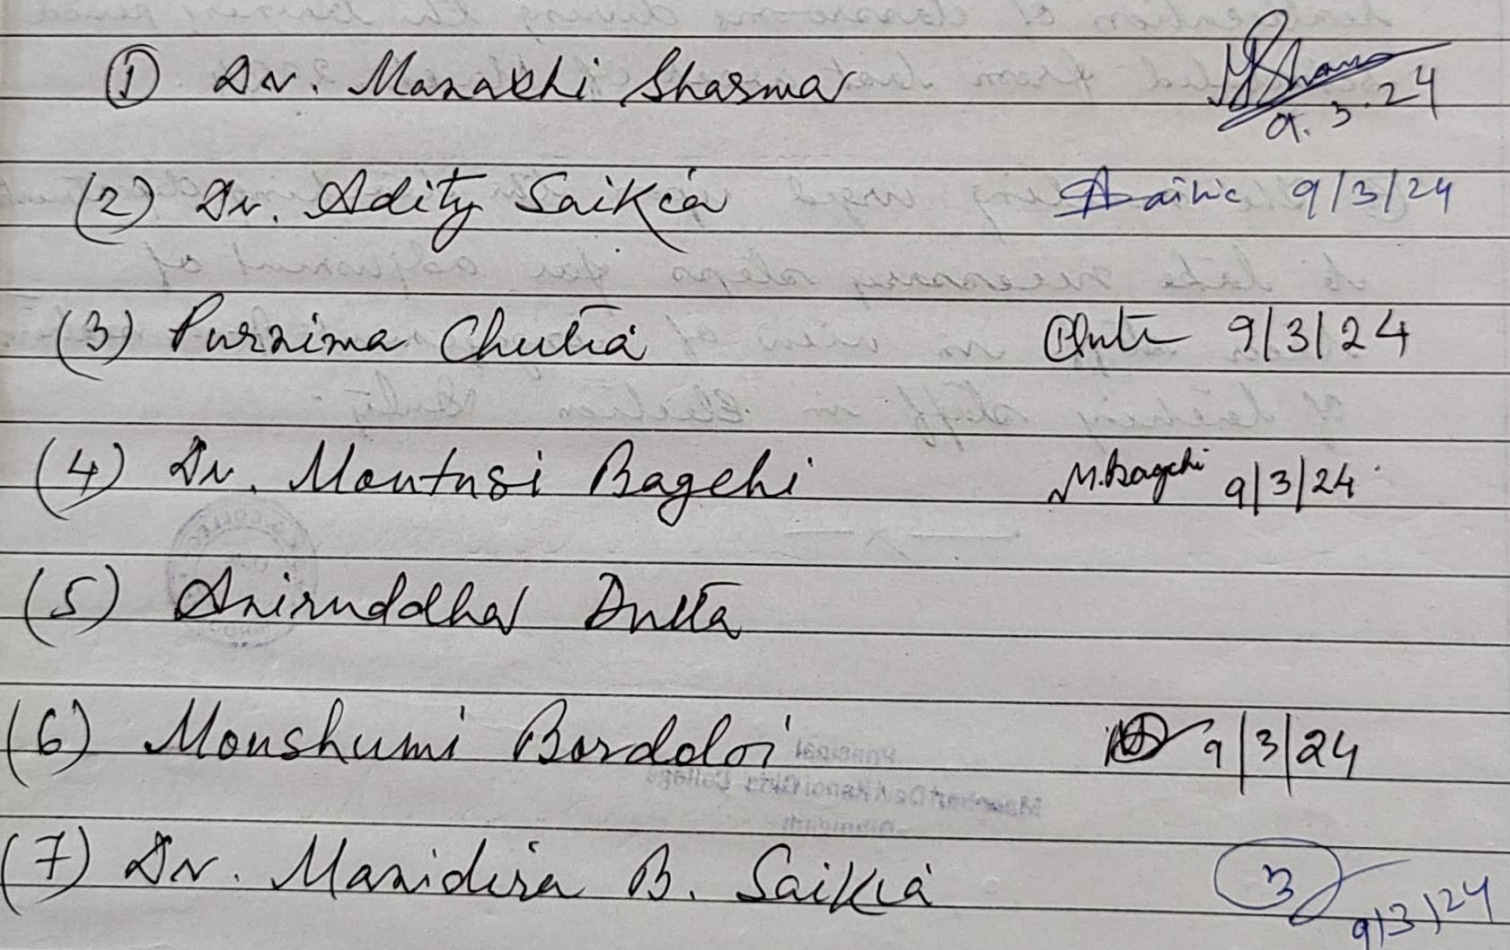 ① Dr. Manakhi Sharma
9.3.24
(2) Dr. Adity Saikia Saikia 9/3/24
(3) Purnima Chutia 9/3/24
(4) Dr. Moutusi Bagchi M.Bagchi 9/3/24
(5) Aniruddha Dutta
(6) Moushumi Bordoloi 9/3/24
(7) Dr. Manidira B. Saikia
9/3/24